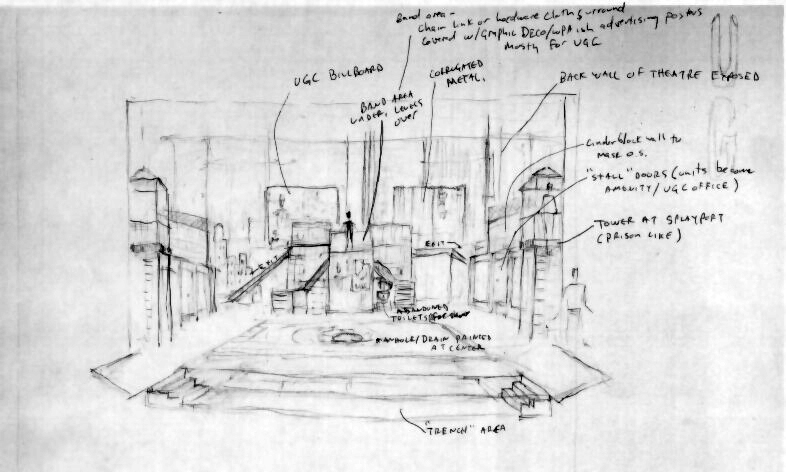 Band area -
Chain Link or hardware cloth surround
Covered w/Graphic DECO/WPA ish advertising posters
Mostly for UGC
UGC BILLBOARD
BAND AREA
UNDER, LEVELS
OVER
CORRUGATED
METAL.
BACK WALL OF THEATRE EXPOSED
Cinderblock wall to
mask o.s.
"STALL" DOORS (units become
AMENITY/UGC OFFICE)
TOWER AT SPLAYPORT
(PRISON LIKE)
EXIT
EXIT
ABANDONED
TOILETS
MANHOLE/DRAIN PAINTED
AT CENTER
"TRENCH" AREA
U
G